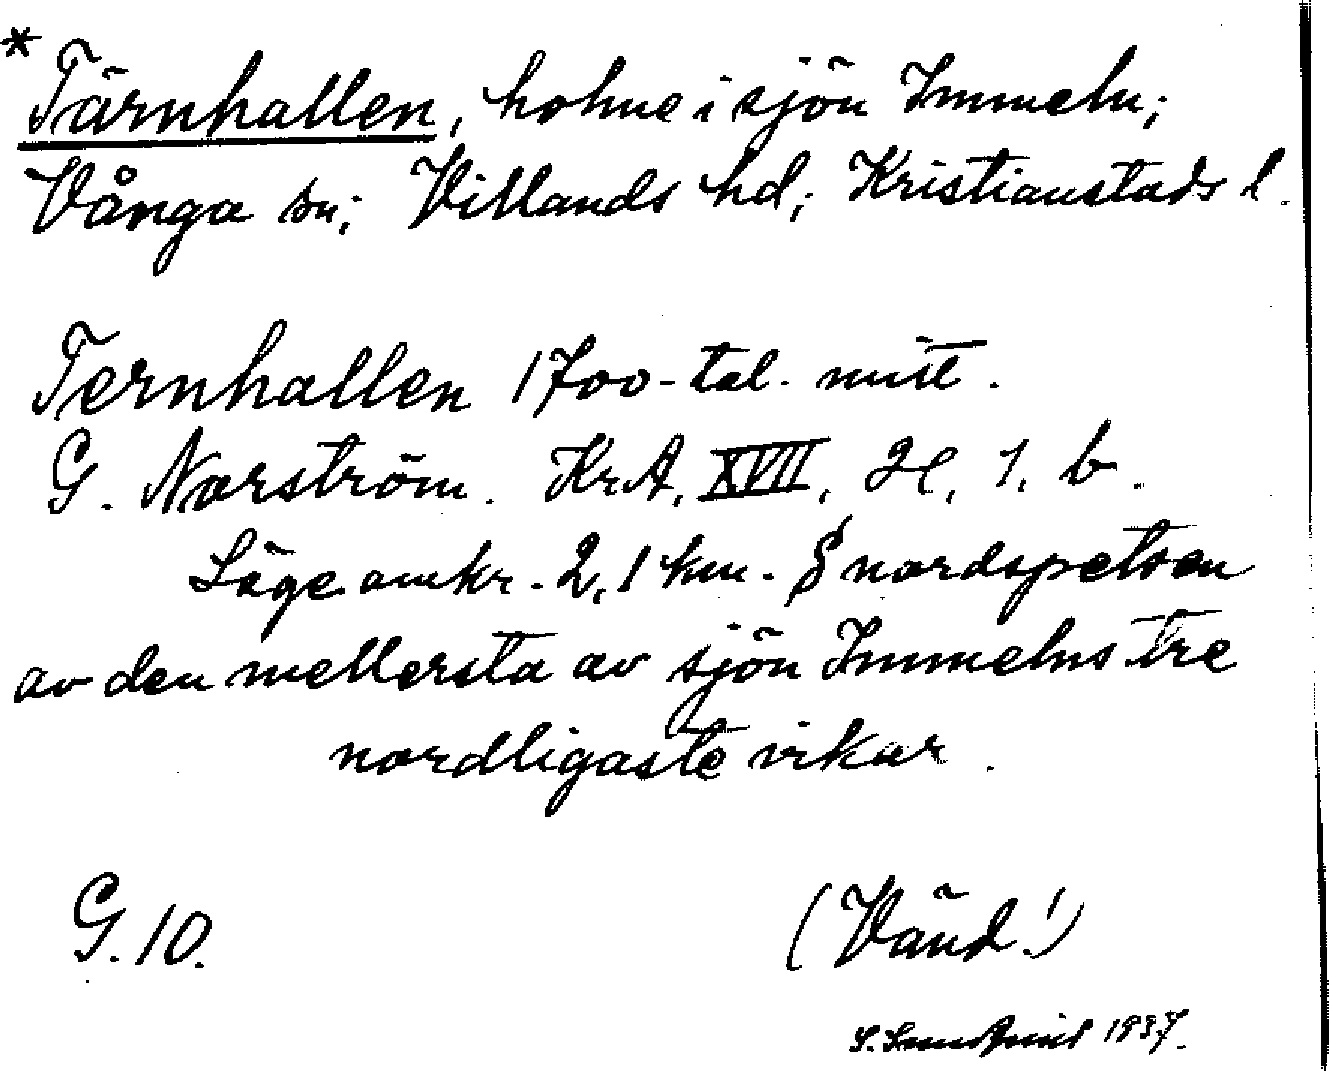 * Tärnhallen, holme i sjön Immeln;
Vånga sn; Villands hd; Kristianstads l.
Ternhallen 1700-tal. mitt.
G. Norström. KrA, XVII, H, 1, b.
Läge omkr. 2,1 km. S nordspetsen
av den mellersta av sjön Immelns tre
nordligaste vikar.
G. 10.
(Vänd!)
1937.